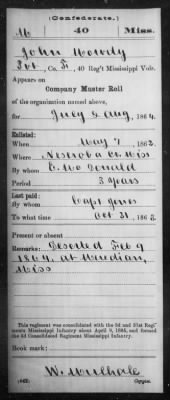 (Confederate.)
M 40 Miss.
John Mowdy
Pvt., Co. F, 40 Reg't Mississippi Vols.
Appears on
Company Muster Roll
of the organization named above,
for July & Aug, 1864.
Enlisted:
When May 7, 1862.
Where Neshoba Co. Miss
By whom E. McDonald
Period 3 years
Last paid:
By whom Capt Jones
To what time Oct 31, 1863.
Present or absent
Remarks: Deserted Feb 9
1864, at Meridian,
Miss
This regiment was consolidated with the 3d and 31st Regi-
ments Mississippi Infantry about April 9, 1865, and formed
the 3d Consolidated Regiment Mississippi Infantry.
Book mark:
W. Mulhall
(642) Copyist.